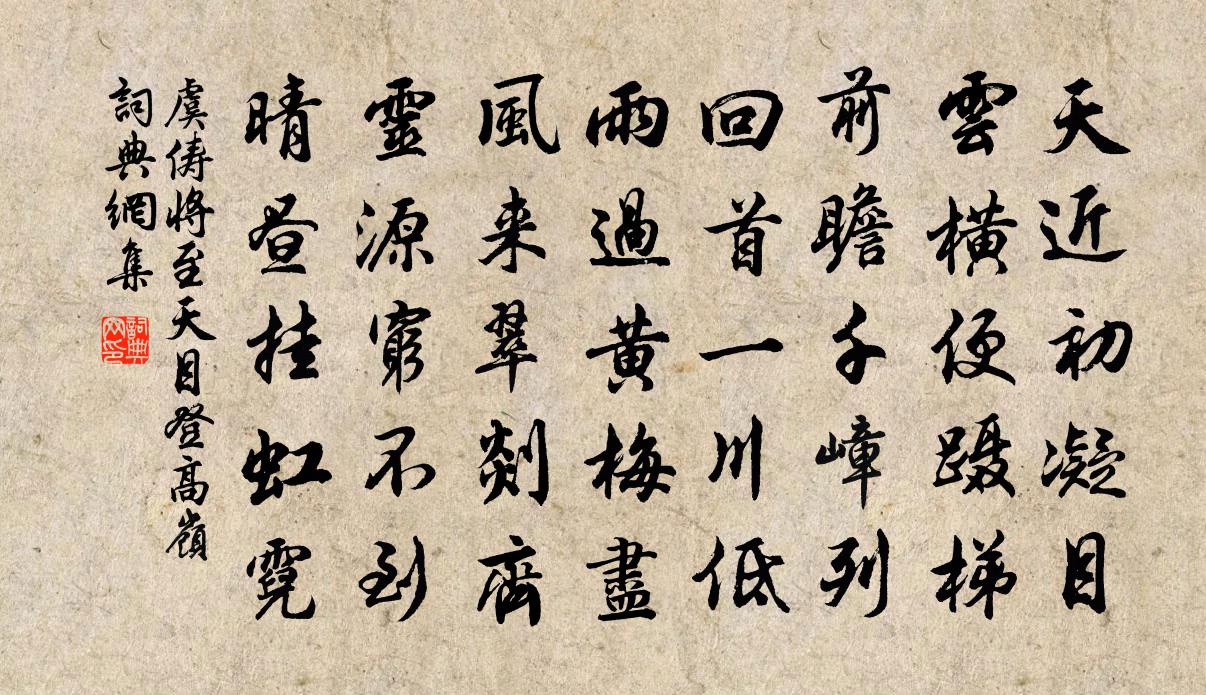 天近初凝目
雲橫便躡梯
前瞻千嶂列
回首一川低
雨過黃梅盡
風来翠剡齊
靈源窮不到
晴昼挂虹霓
虞俦將至天目登高嶺
詞典網集
詞典網印